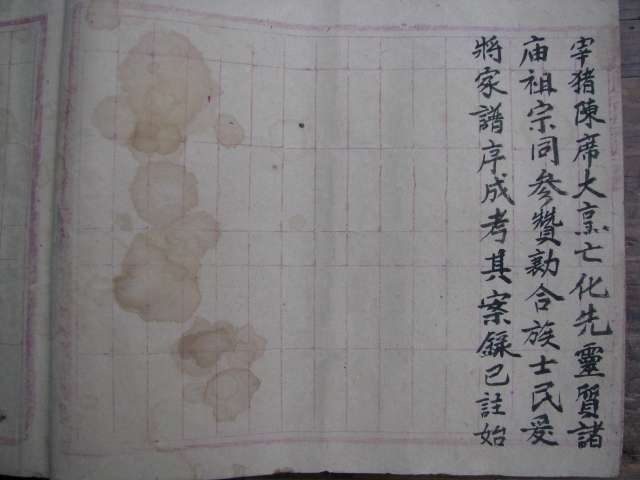 宰猪陳席大烹亡化先靈質諸
庙祖宗同参贊勷合族士民爰
將家譜序成考其案録已註始